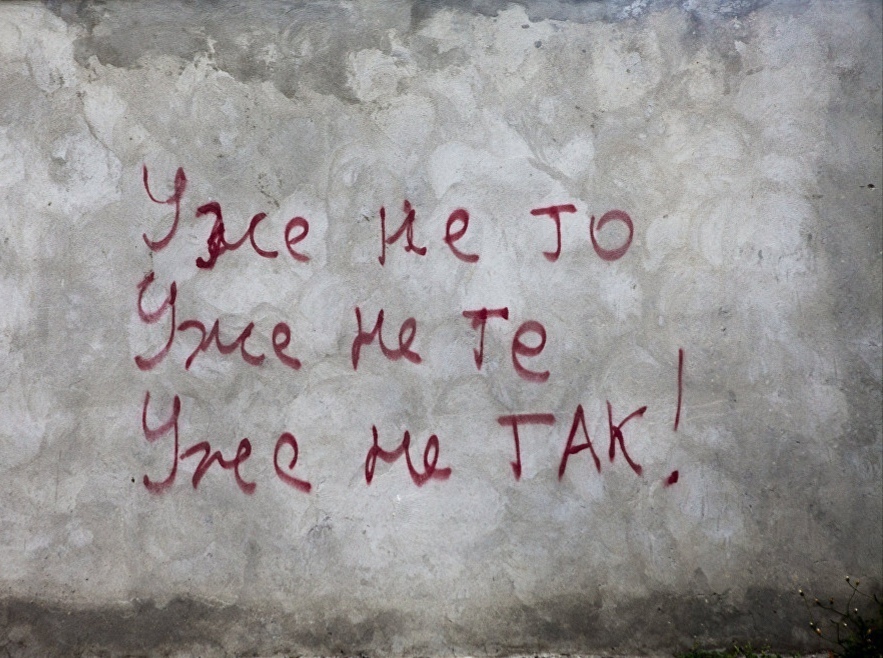 Уже не то
Уже не те
Уже не ТАК!